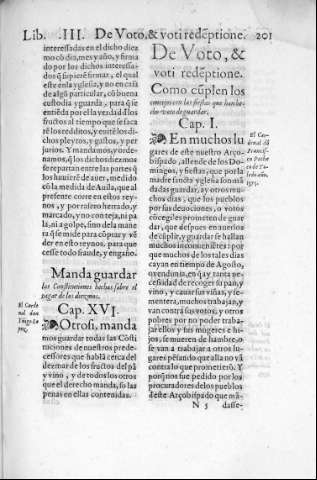 Lib. .III. De Voto, & voti redẽptione. 201
interessadas en el dicho diez
mo cõ dia, mes y año, y firma
do por los dichos interessa-
dos si supierẽ firmar, el qual
este en la yglesia, y no en ca-
sa de algũ particular, cõ buena
custodia y guarda, para q̃ se
entiẽda por el la verdad d̃ los
fructos al tiempo que se saca
rẽ los redditos, y euitẽ los di-
chos pleytos, y gastos, y per
jurios. Y mandamos, y orde-
namos, q̃ los dichos diezmos
se repartan entre las partes q̃
los houierẽ de auer, medido
cõ la medida de Auila, que al
presente corre en estos rey-
nos, y por rasero herrado, y
marcado, y no con teja, ni pa
la, ni a golpe, sino de la mane
ra que se mide para cõprar y vẽ
der en estos reynos, para que
cesse todo fraude, y engaño.
Manda guardar
las Constituciones hechas sobre el
pagar de los diezmos.
Cap. XVI.
El Carde
nal don
Otrosi, manda
mos guardar todas las Cõsti
tuciones de nuestros prede-
cessores que hablã cerca del
dezmar de los fructos del pã
y vino, y de todos los otros
que el derecho manda, so las
penas en ellas contenidas.
De Voto, &
voti redẽptione.
Como cũplen los
concejos con las fiestas que han he-
cho voto de guardar.
Cap. I.
En muchos lu
gares de este nuestro Arço-
bispado, allende de los Do-
mingos, y fiestas, que por la
madre sancta yglesia son mã
dadas guardar, ay otros mu-
chos dias, que los pueblos
por sus deuociones, o votos
cõcegiles prometen de guar
dar, que despues en auerlos
de cũplir, y guardar se hallan
muchos inconuenientes: por
que muchos de los tales dias
cayan en tiempo de Agosto,
y vendimia, en q̃ ay tanta ne
cessidad de recoger su pan, y
vino, y cauar sus viñas, y se-
mentera, muchos trabajan, y
van contra sus votos, y otros
pobres por no poder traba-
jar ellos y sus mugeres e hi-
jos, se mueren de hambre, o
se van a trabajar a otros lu-
gares pẽsando que alla no vã
contra lo que prometierõ. Y
porq̃ nos fue pedido por los
procuradores de los pueblos
deste Arçobispado que mã-
El Car-
denal dõ
N 5 dasse-